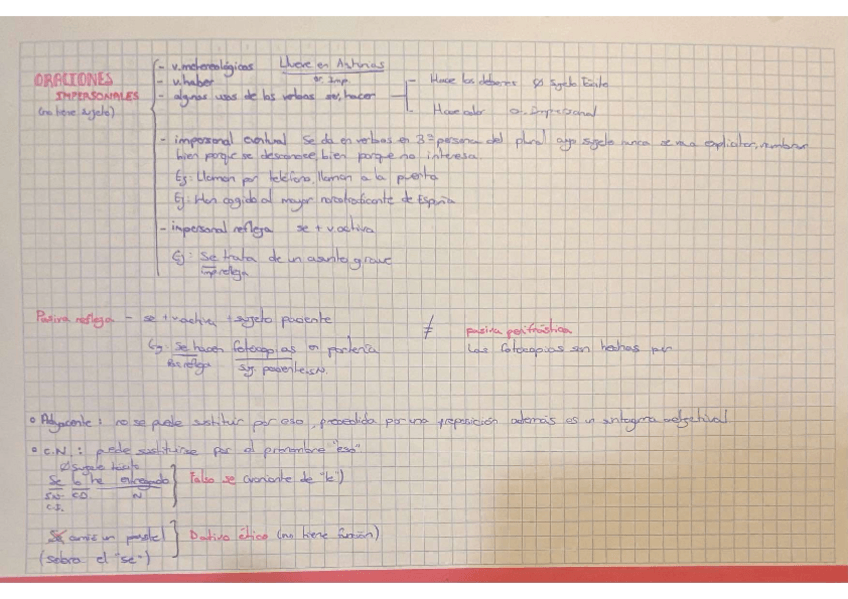 ORACIONES IMPERSONALES
(no tiene sujeto)
- v. metereológicos Llueve en Asturias
or. Imp
- v. haber
- algunos usos de los verbos ser, hacer
- Hace los deberes Ø sujeto tácito
- Hace calor o. Impersonal
- impersonal eventual Se da en verbos en 3ª persona del plural cuyo sujeto nunca se va a explicitar, nombrar
bien porque se desconoce, bien porque no interesa.
Ej: Llaman por teléfono, llaman a la puerta
Ej: Han cogido al mayor narcotraficante de España
- impersonal refleja se + v activa
Ej: Se trata de un asunto grave
Imp refleja
Pasiva refleja - se + v activa + sujeto paciente
Ej: Se hacen fotocopias en portería
Pas refleja Suj. paciente S.N.
≠
pasiva perifrástica
Las fotocopias son hechas por
° Adyacente: no se puede sustituir por eso, precedida por una preposición además es un sintagma adjetival
° C.N.: puede sustituirse por el pronombre "eso"
Ø sujeto tácito
Se lo he entregado } Falso se (variante de "le")
S.N. CD N
C.I.
Se comió un pastel } Dativo ético (no tiene función)
(sobra el "se")